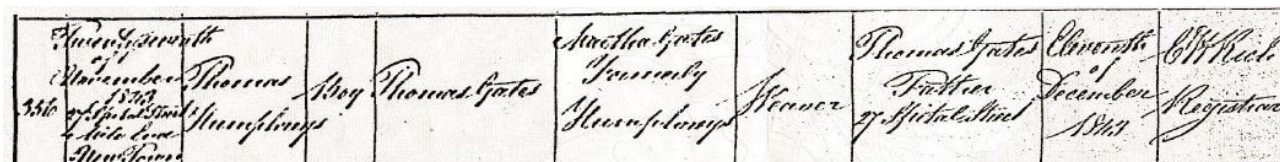 356
Twenty seventh
of
November
1843
27 Spital Street
Mile End
New Town
Thomas
Humphreys
Boy
Thomas Gates
Martha Gates
Formerly
Humphreys
Weaver
Thomas Gates
Father
27 Spital Street
Eleventh
of
December
1843
Registrar